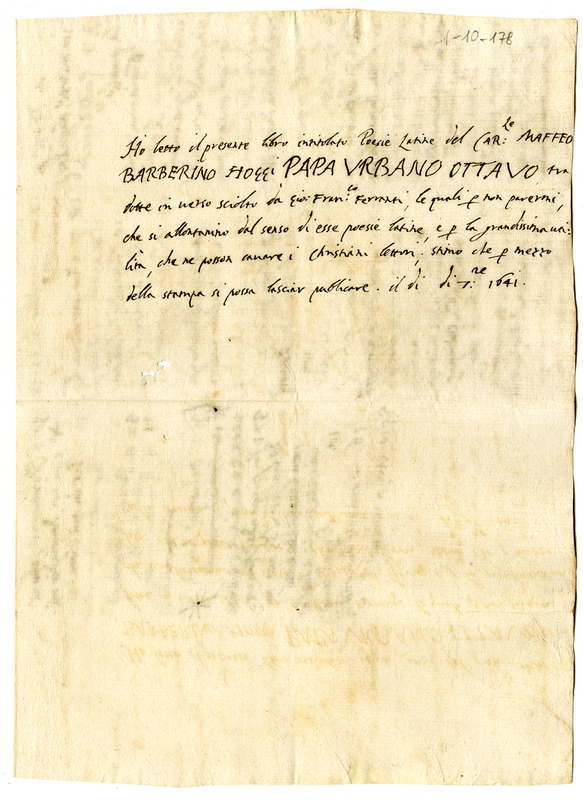 1-10-178
Ho letto il presente libro intitolato Poesie Latine del CAR:le MAFFEO
BARBERINO HOggi PAPA VRBANO OTTAVO tra
dotte in verso sciolto da Gio: Fran:co Ferranti, le quali p non parermi,
che si allontanino dal senso di esse poesie latine, e p la grandissima uti
lità, che ne posson cauare i Christiani lettori, stimo che p mezzo
della stampa si possa lasciar publicare. il di di 7:re 1641.